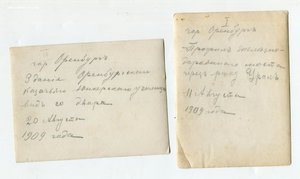 гор Оренбургъ
Здание Оренбургскаго
Казачьяго Юнкерского училища
видъ со двора
20 Августа
1909 года
I
гор Оренбургъ
моста
чрез реку Уралъ
11 Августа
1909 года